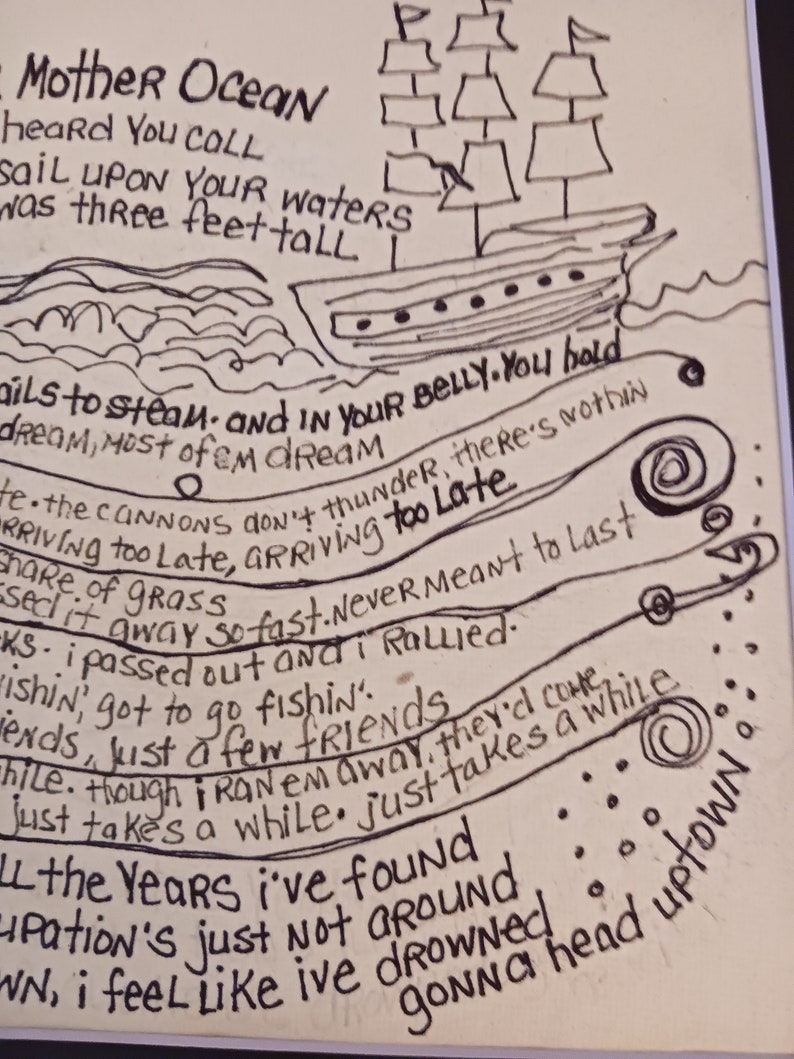 Mother Ocean
heard you call
sail upon your waters
was three feet tall
ails to steam. and in your belly. you hold
dream, most of em dream
te. the cannons don't thunder, there's nothin
rriving too late, arriving too late
share of grass
ssed it away so fast. never meant to last
ks. i passed out and i rallied.
ishin', got to go fishin'.
iends, just a few friends
hile. though i ran em away. they'd come
just takes a while. just takes a while
ll the years i've found
upation's just not around
wn, i feel like ive drowned
gonna head uptown